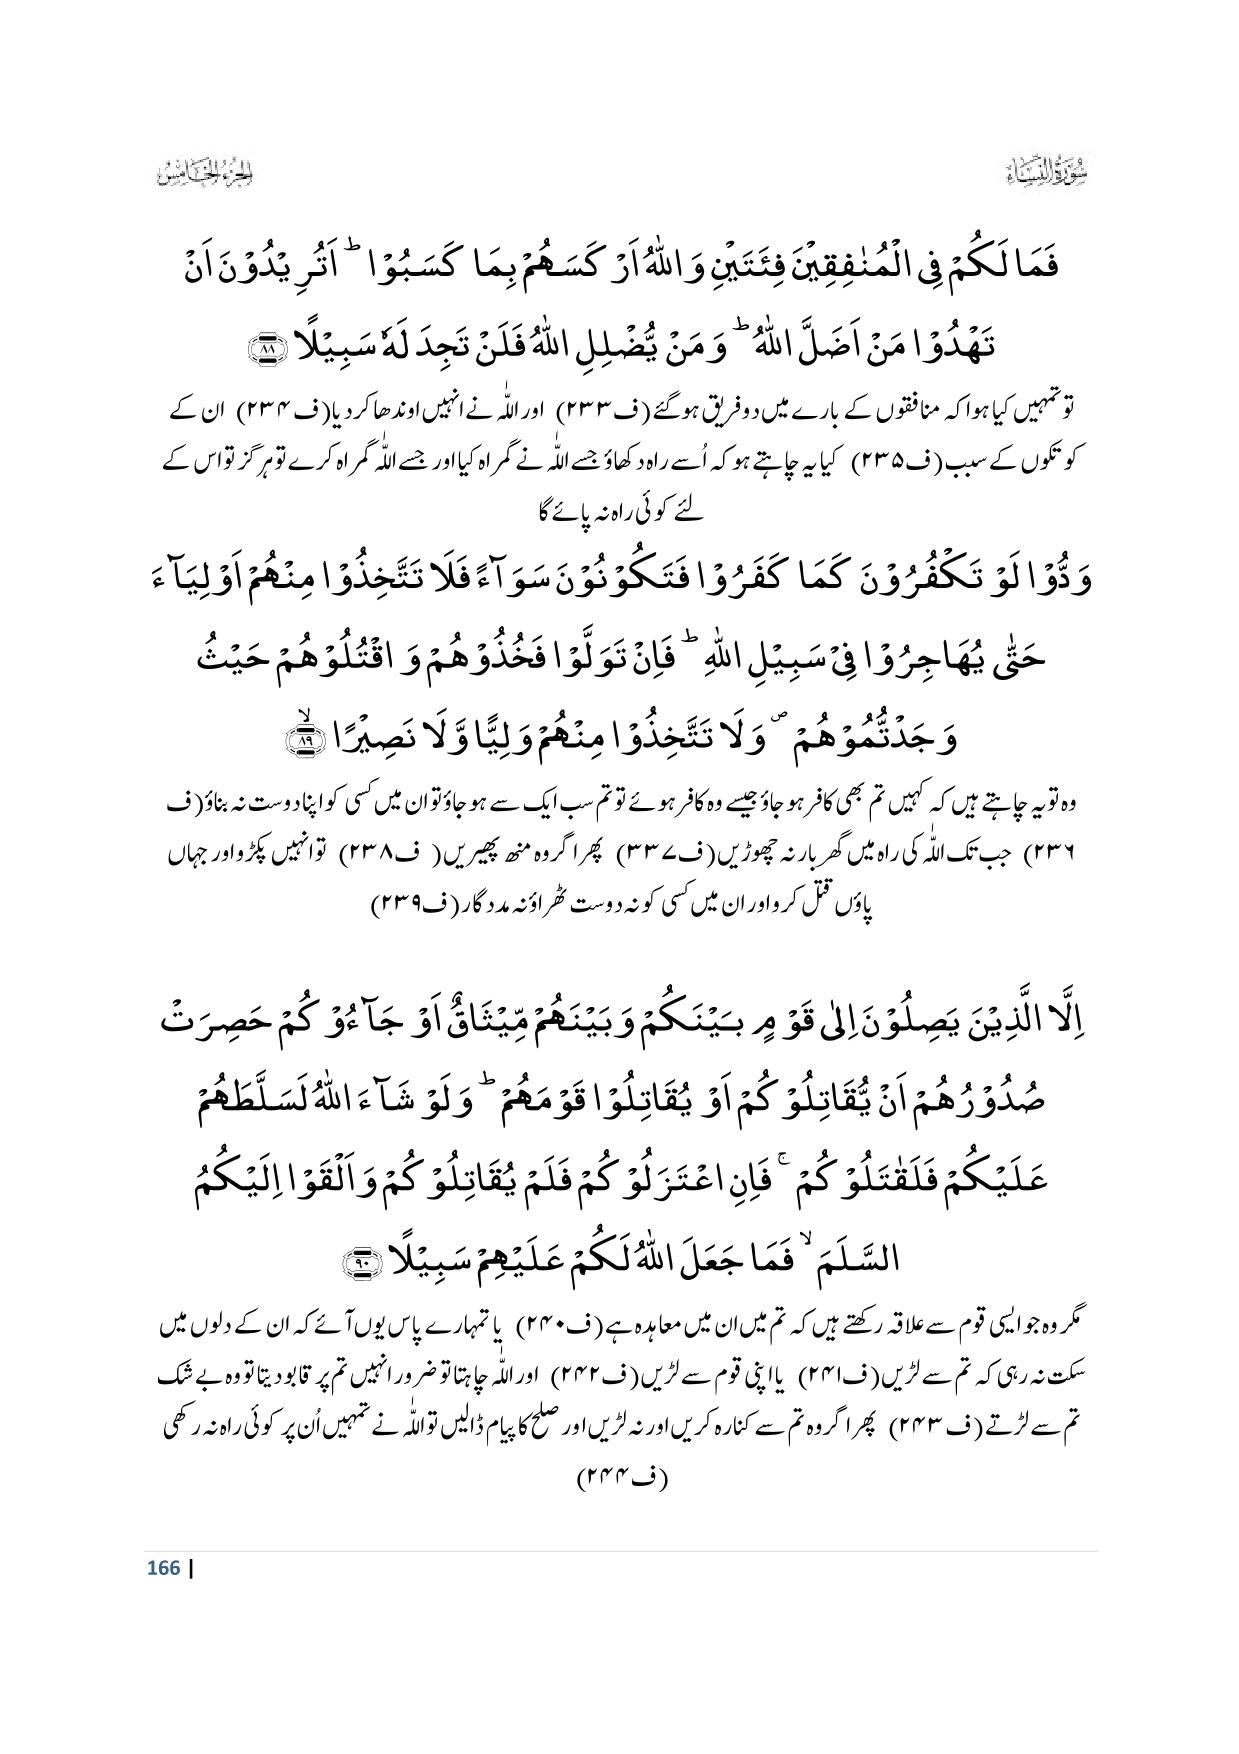 سُوْرَةُ النِّسَاءِ
الجزء الخامس
فَمَا لَكُمْ فِی الْمُنٰفِقِیْنَ فِئَتَیْنِ وَ اللّٰهُ اَرْكَسَهُمْ بِمَا كَسَبُوْا ؕ اَتُرِیْدُوْنَ اَنْ
تَهْدُوْا مَنْ اَضَلَّ اللّٰهُ ؕ وَ مَنْ یُّضْلِلِ اللّٰهُ فَلَنْ تَجِدَ لَهٗ سَبِیْلًا ﴿۸۸﴾
تو تمہیں کیا ہوا کہ منافقوں کے بارے میں دو فریق ہو گئے (ف۲۳۳) اور اللّٰہ نے انہیں اوندھا کر دیا (ف۲۳۴) ان کے
کوتکوں کے سبب (ف۲۳۵) کیا یہ چاہتے ہو کہ اُسے راہ دکھاؤ جسے اللّٰہ نے گمراہ کیا اور جسے اللّٰہ گمراہ کرے تو ہرگز تو اس کے
لئے کوئی راہ نہ پائے گا
وَدُّوْا لَوْ تَكْفُرُوْنَ كَمَا كَفَرُوْا فَتَكُوْنُوْنَ سَوَآءً فَلَا تَتَّخِذُوْا مِنْهُمْ اَوْلِیَآءَ
حَتّٰی یُهَاجِرُوْا فِیْ سَبِیْلِ اللّٰهِ ؕ فَاِنْ تَوَلَّوْا فَخُذُوْهُمْ وَ اقْتُلُوْهُمْ حَیْثُ
وَجَدْتُّمُوْهُمْ ۪ وَلَا تَتَّخِذُوْا مِنْهُمْ وَلِیًّا وَّلَا نَصِیْرًا ﴿ۙ۸۹﴾
وہ تو یہ چاہتے ہیں کہ کہیں تم بھی کافر ہو جاؤ جیسے وہ کافر ہوئے تو تم سب ایک سے ہو جاؤ تو ان میں کسی کو اپنا دوست نہ بناؤ (ف
۲۳۶) جب تک اللّٰہ کی راہ میں گھر بار نہ چھوڑیں (ف۲۳۷) پھر اگر وہ منھ پھیریں ( ف۲۳۸) تو انہیں پکڑو اور جہاں
پاؤں قتل کرو اور ان میں کسی کو نہ دوست ٹھراؤ نہ مددگار (ف۲۳۹)
اِلَّا الَّذِیْنَ یَصِلُوْنَ اِلٰی قَوْمٍۭ بَیْنَكُمْ وَ بَیْنَهُمْ مِّیْثَاقٌ اَوْ جَآءُوْكُمْ حَصِرَتْ
صُدُوْرُهُمْ اَنْ یُّقَاتِلُوْكُمْ اَوْ یُقَاتِلُوْا قَوْمَهُمْ ؕ وَلَوْ شَآءَ اللّٰهُ لَسَلَّطَهُمْ
عَلَیْكُمْ فَلَقٰتَلُوْكُمْ ۚ فَاِنِ اعْتَزَلُوْكُمْ فَلَمْ یُقَاتِلُوْكُمْ وَ اَلْقَوْا اِلَیْكُمُ
السَّلَمَ ۙ فَمَا جَعَلَ اللّٰهُ لَكُمْ عَلَیْهِمْ سَبِیْلًا ﴿۹۰﴾
مگر وہ جو ایسی قوم سے علاقہ رکھتے ہیں کہ تم میں ان میں معاہدہ ہے (ف۲۴۰) یا تمہارے پاس یوں آئے کہ ان کے دلوں میں
سکت نہ رہی کہ تم سے لڑیں (ف۲۴۱) یا اپنی قوم سے لڑیں (ف۲۴۲) اور اللّٰہ چاہتا تو ضرور انہیں تم پر قابو دیتا تو وہ بے شک
تم سے لڑتے (ف۲۴۳) پھر اگر وہ تم سے کنارہ کریں اور نہ لڑیں اور صلح کا پیام ڈالیں تو اللّٰہ نے تمہیں اُن پر کوئی راہ نہ رکھی
(ف۲۴۴)
166 |